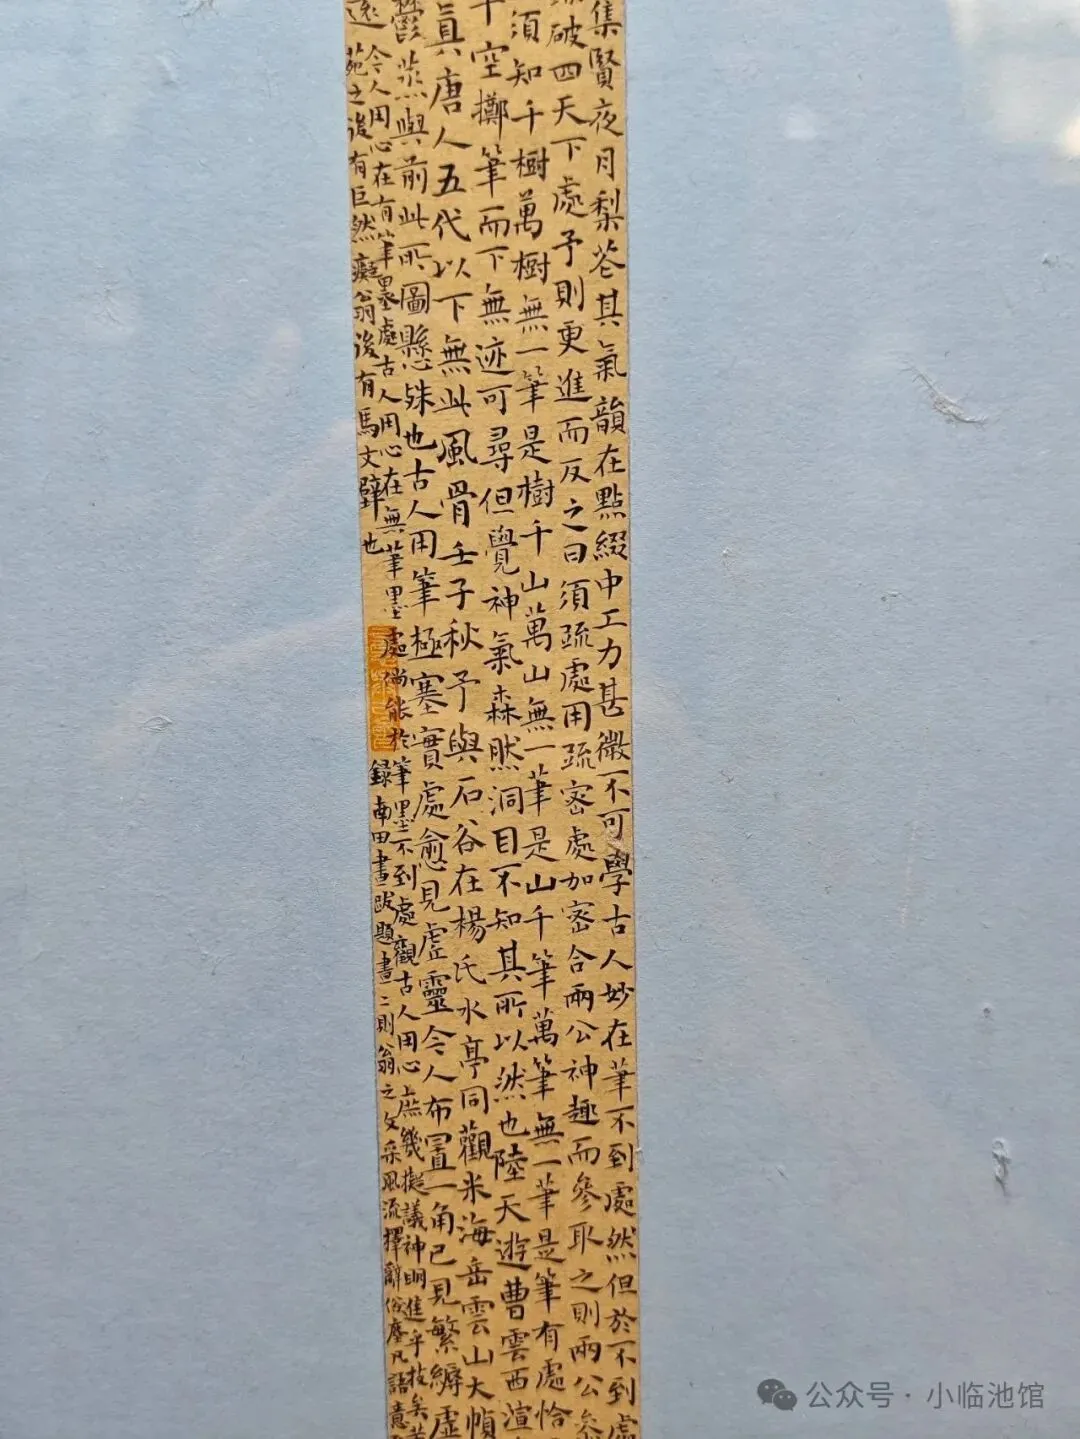 集賢夜月梨花其氣韻在點綴中工力甚微不可學古人妙在筆不到處然但於不到處
破四天下處予則更進而反之曰須疏處用疏密處加密合兩公神趣而參取之則兩公參
須知千樹萬樹無一筆是樹千山萬山無一筆是山千筆萬筆無一筆是筆有處恰
千空擲筆而下無迹可尋但覺神氣森然洞目不知其所以然也陸天遊曹雲西渲
真唐人五代以下無此風骨壬子秋予與石谷在楊氏水亭同觀米海岳雲山大幀
鬱蒸與前此所圖懸殊也古人用筆極塞實處愈見虛靈今人布置一角已見繁縟虛
今人用心在有筆墨處古人用心在無筆墨處倘能於筆墨不到處觀古人用心庶幾擬議神明進乎技矣
逸苑之後有巨然癡翁後有馬文璧也
錄南田畫跋題畫二則翁之文采風流擇辭俗塵凡語意
公众号·小临池馆